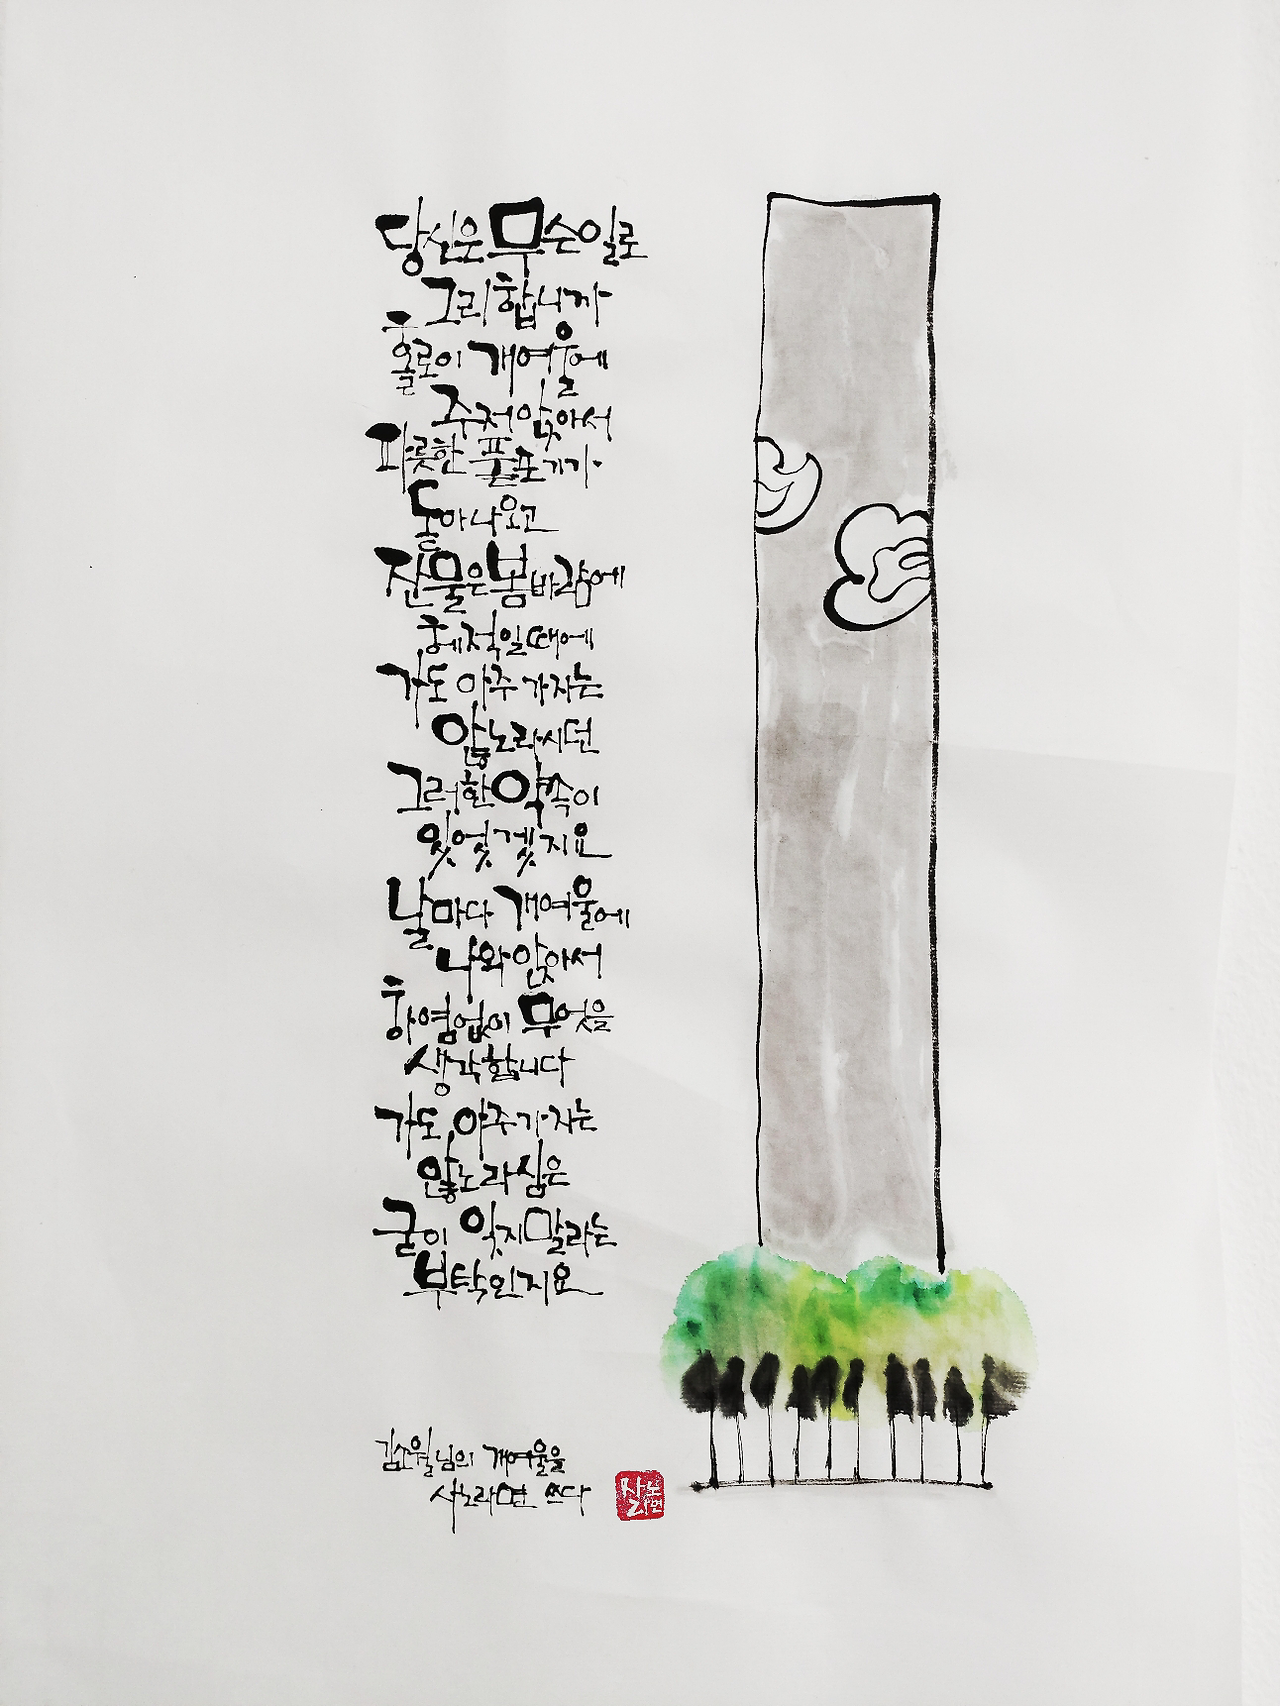 당신은 무슨 일로
그리합니까
홀로이 개여울에
주저앉아서
파릇한 풀포기가
돋아나오고
잔물은 봄바람에
헤적일 때에
가도 아주 가지는
않노라시던
그러한 약속이
잇엇겟지요
날마다 개여울에
나와 앉아서
하염없이 무엇을
생각합니다
가도 아주 가지는
않노라심은
굳이 잊지 말라는
부탁인지요
김소월님의 개여울을
사노라면 쓰다
사노
라면